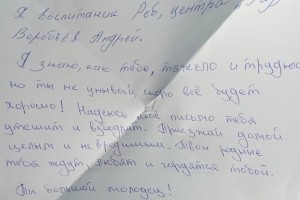 Я воспитаник Реб, центра
Воробьёв Андрей.
Я знаю, как тебе, тяжело и трудно
но ты не унывай, скоро всё будет
хорошо! Надеюсь моё письмо тебя
утешит и взбодрит. Приезжай домой
целым и невредимым. Твои родние
тебя ждут, любят и гордятся тобой.
Ты большой молодец!